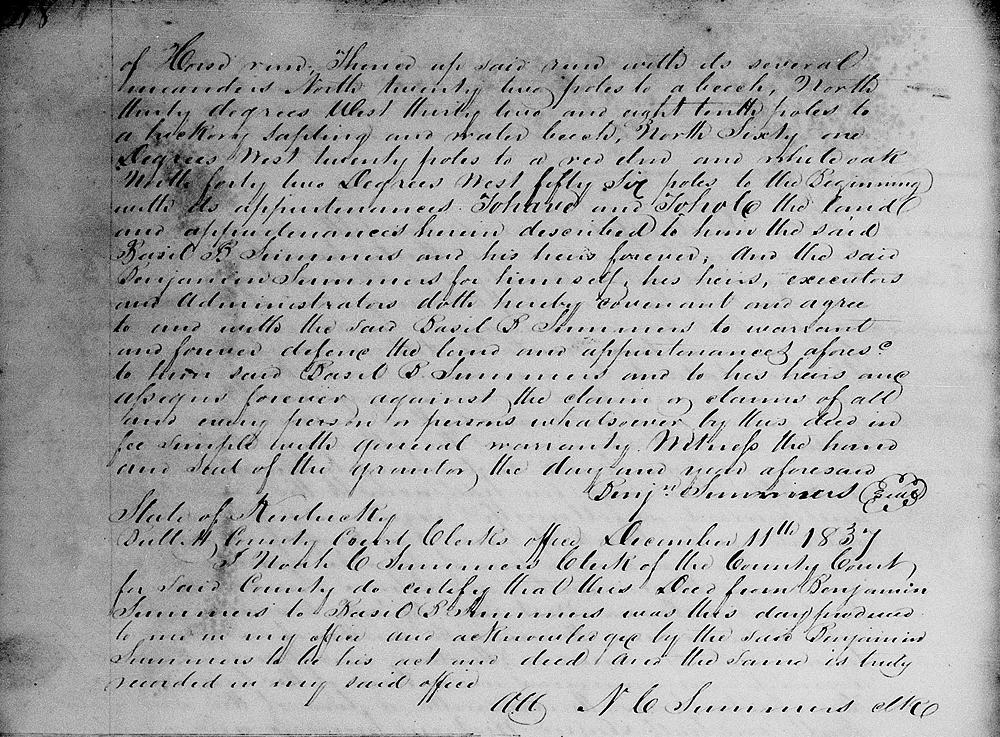 of run. Thence up said run with its several
meanders North twenty two poles to a beech, North
thirty degrees West thirty two and eight tenth poles to
a hickory sapling and water beech, North Sixty one
Degrees West twenty poles to a red elm and white oak
North forty two Degrees West fifty Six poles to the Beginning
with its appurtenances To have and To hold the land
and appurtenances herein described to him the said
Basil B Summers and his heirs forever, And the said
Benjamin Summers for himself, his heirs, executors
and Administrators doth hereby covenant and agree
to and with the said Basil B Summers to warrant
and forever defend the land and appurtenances afores.d
to him said Basil B. Summers and to his heirs and
assigns forever against the claim or claims of all
and every person or persons whatsoever by this deed in
fee simple with general warranty. Witness the hand
and seal of the grantor the day and year aforesaid
Benj.n Summers Seal
State of Kentucky
Bullitt County Court Clerks office December 11th 1837
I Noah C Summers Clerk of the County Court
for said County do certify that this Deed from Benjamin
Summers to Basil B Summers was this day produced
to me in my office and acknowledged by the said Benjamin
Summers to be his act and deed And the same is truly
recorded in my said office
Att N C Summers clk